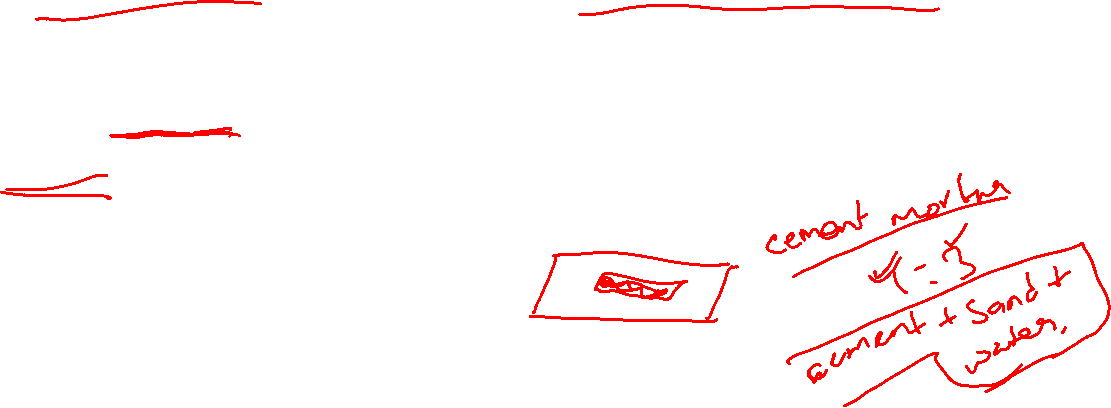 cement mortar
1:3
cement + sand +
water.